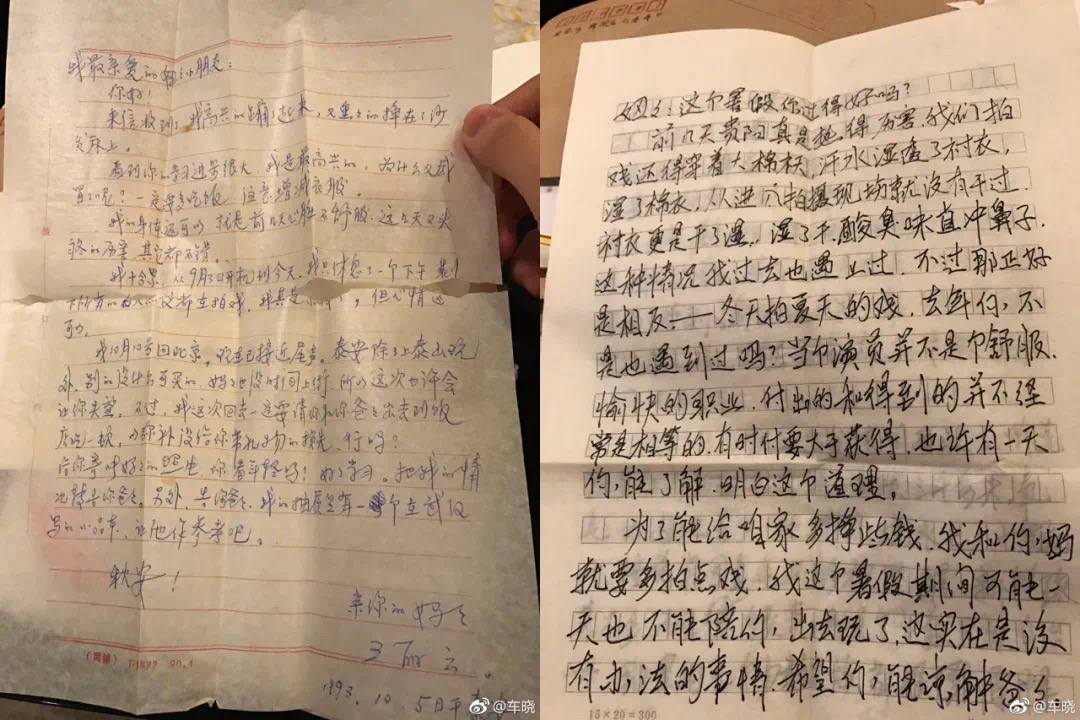 我最亲爱的小朋友:
你好!
来信收到,我高兴的蹦了起来,又重重的摔在了沙
发床上。
看到你的学习进步很大,我是最高兴的,为什么又感
冒了呢?一定要多吃饭,注意增减衣服。
我的身体还可以,就是前几天心脏不舒服,这几天又头
疼的厉害,其它都不错。
我十余累,从9月3日开机到今天,我只休息了一个下午,
都在拍戏,我真是,但心情还
可以。
我10月12号回北京,现在已接近尾声。泰安除了上泰山玩
外,别的没什么可买的,妈妈也没时间上街,所以这次也许会
让你失望,不过,我这次回去一定要请你和你爸爸出去到饭
店吃一顿,以弥补没给你带礼物的损失,行吗?
给你寄时好好的照片,你看年轻吗?好好学习。把我的情
况转告你爸爸。另外,告诉爸爸,我的抽屉里有一个在武汉
写的小品本,让他作参考吧。
秋安!
亲你的妈妈
王丽云
1993.10.5日于泰安
妞妞:这个暑假你过得好吗?
前几天贵阳真是热得厉害,我们拍
戏还得穿着大棉袄,汗水湿透了衬衣,
湿了棉衣,从进入拍摄现场就没有干过.
衬衣更是干了湿,湿了干,酸臭味直冲鼻子.
这种情况我过去也遇上过,不过那正好
是相反:——冬天拍夏天的戏,去年你不
是也遇到过吗?当个演员并不是个舒服、
愉快的职业,付出的和得到的并不经
常是相等的,有时付要大于获得,也许有一天
你能了解、明白这个道理。
为了能给咱家多挣些钱,我和你妈
就要多拍点戏,我这个暑假期间可能一
天也不能陪你出去玩了,这实在是没
有办法的事情,希望你能谅解爸爸.
15×20=300
@车晓
@车晓